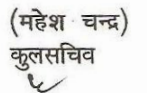 (महेश चन्द्र)
कुलसचिव